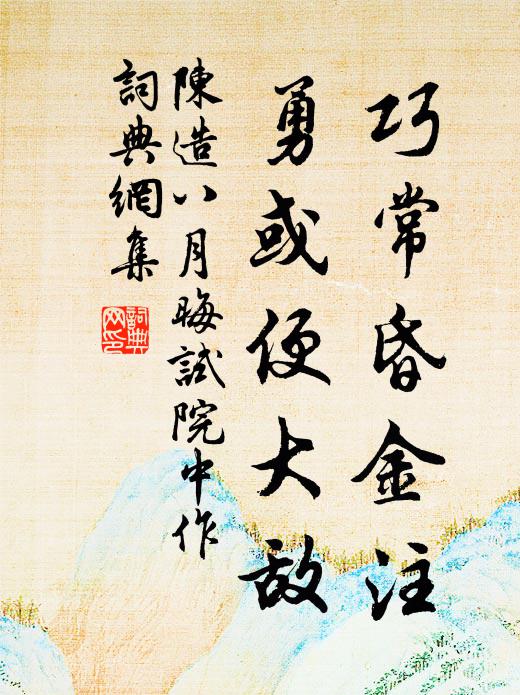 巧常昏金注
勇或便大敌
陳造八月晦試院中作
詞典網集
詞典網印